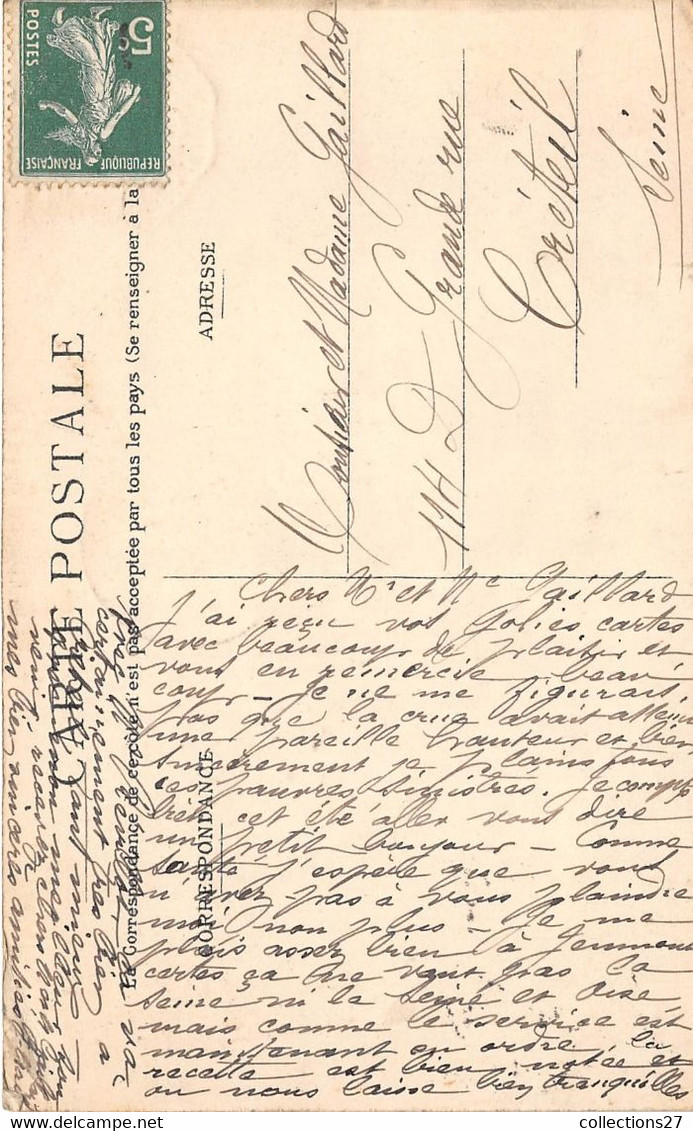 CARTE POSTALE
La Correspondance de ce côté n'est pas acceptée par tous les pays (Se renseigner à la
CORRESPONDANCE
ADRESSE
RÉPUBLIQUE FRANÇAISE
POSTES
5c
Monsieur et Madame Gaillard
114 D Grande rue
Créteil
Seine
Chers Mr et Me Gaillard
J'ai reçu vos jolies cartes
avec beaucoup de plaisir et
vous en remercie beau
coup - je ne me figurais
pas que la crue avait atteint
une pareille hauteur et bien
sincèrement je plains tous
ces pauvres sinistrés. Je compte
bien cet été aller vous dire
un petit bonjour - Comme
santé j'espère que vous
n'avez pas à vous plaindre
moi non plus - Je me
plais assez bien à Jeumont
certes ça ne vaut pas la
Seine ni la Seine et Oise
mais comme le service est
maintenant en ordre, la
recette est bien notée et
on nous laisse bien tranquilles
va
certainement très bien
tant mieux
recevez
mes bien sincères amitiés
collections27